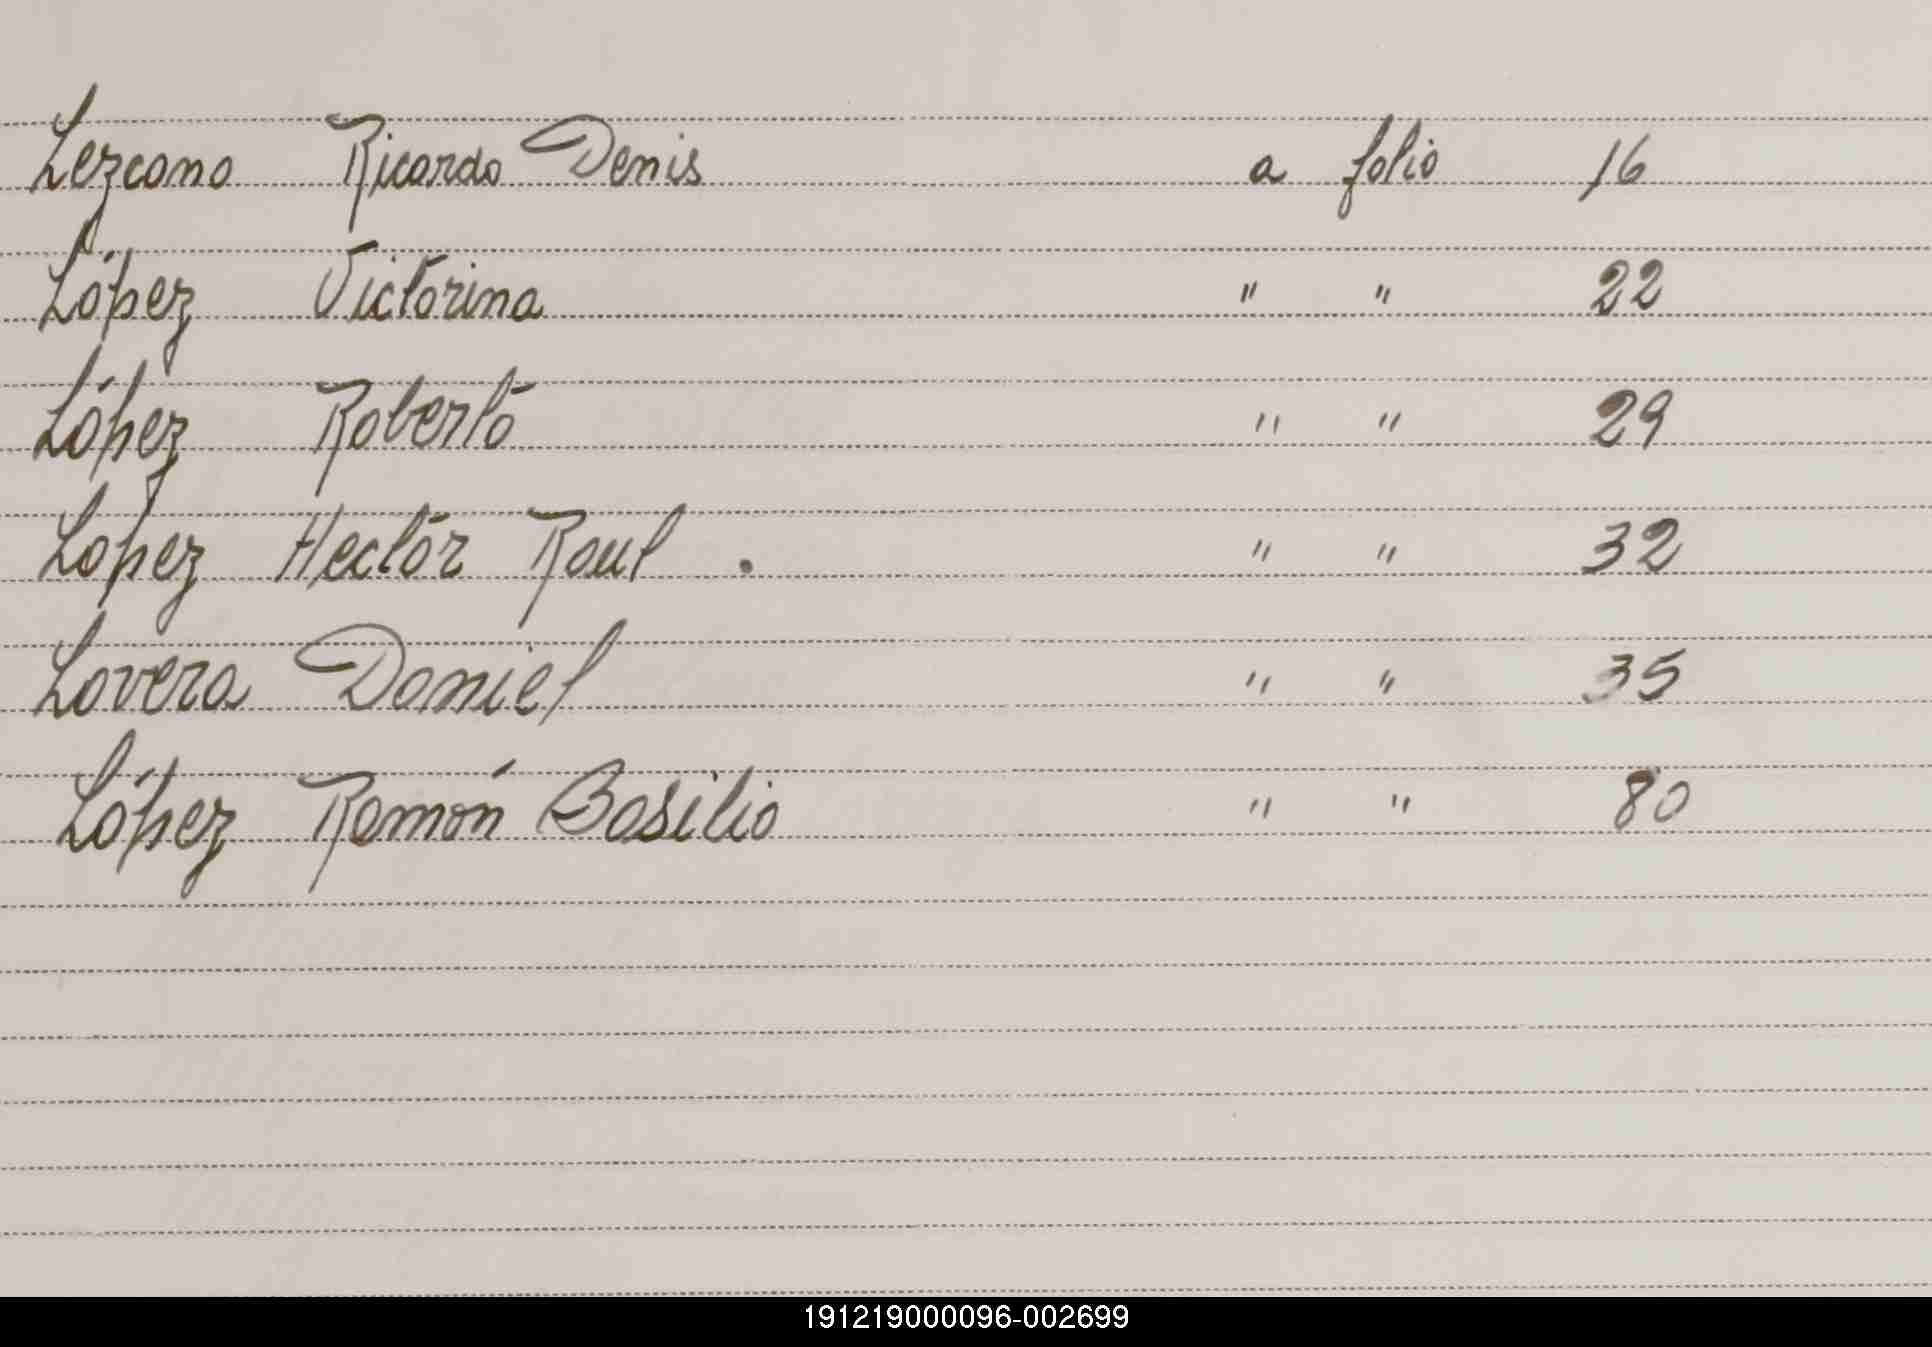 Lezcano Ricardo Denis a folio 16
López Victorina " " 22
López Roberto " " 29
Lopez Hector Raul . " " 32
Lovera Daniel " " 35
López Ramón Basilio " " 80
191219000096-002699